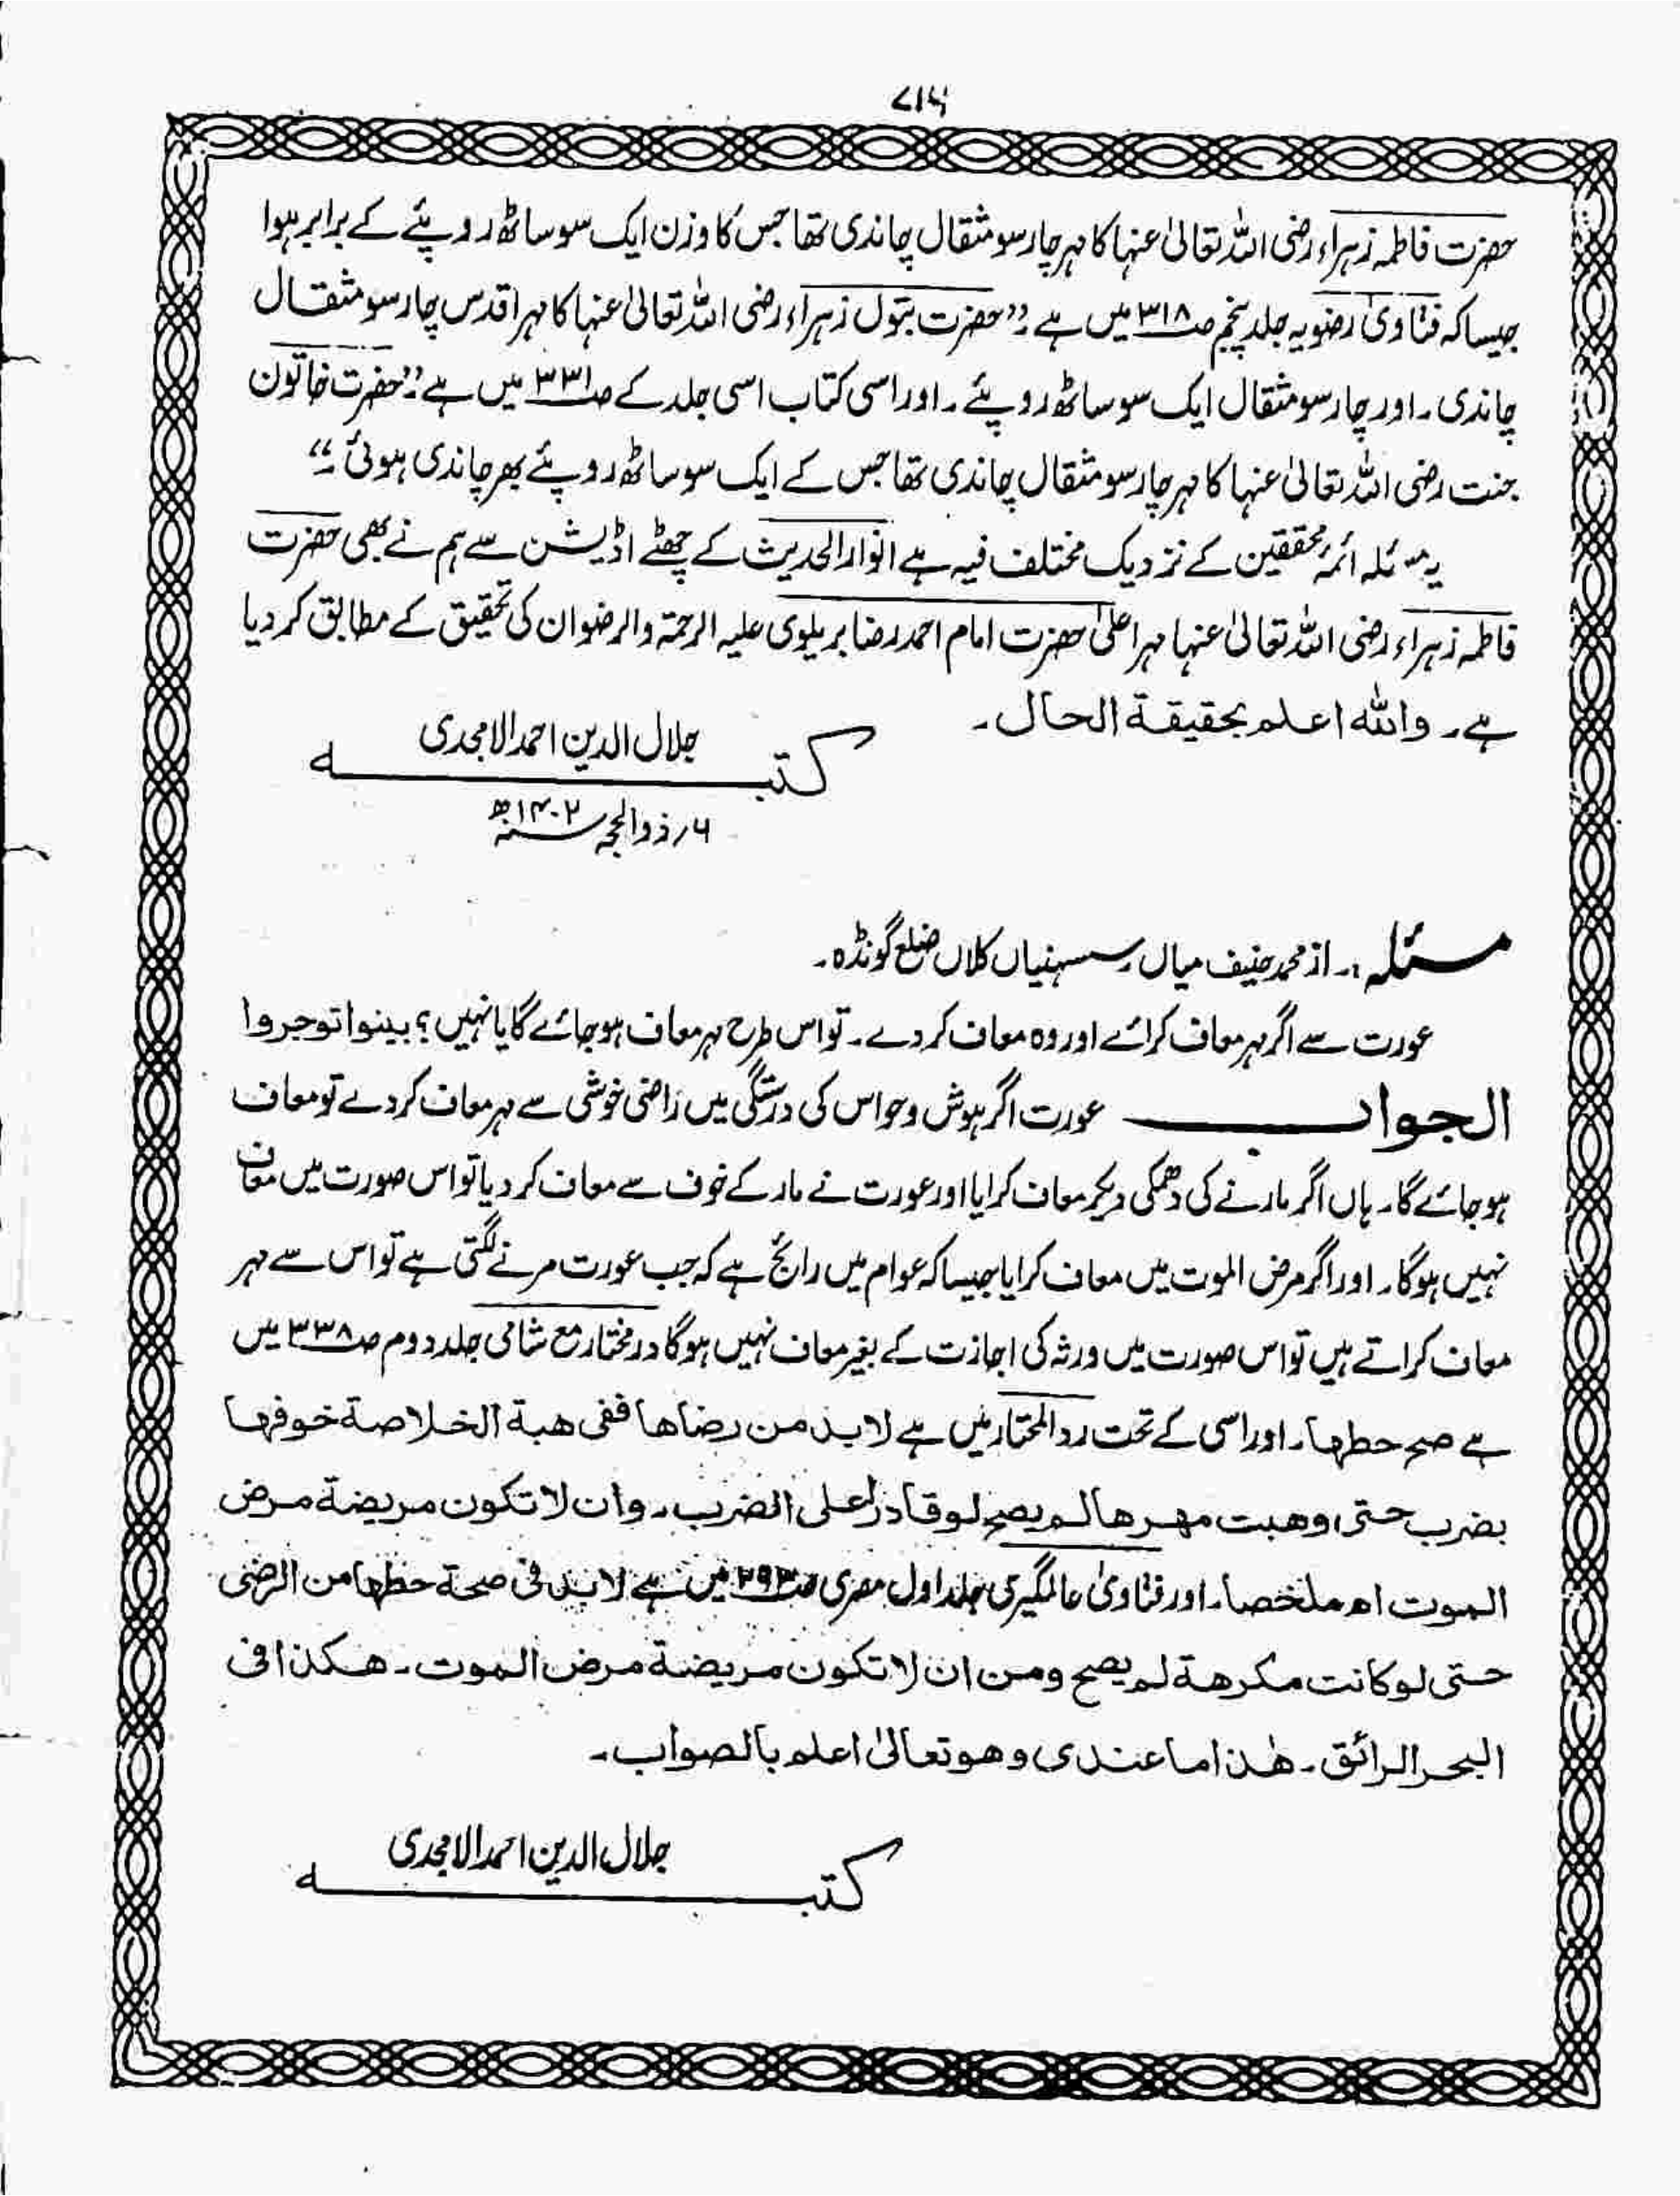 ۷۱۵
حضرت فاطمہ زہراء رضی اللہ تعالیٰ عنہا کا مہر چار سو مثقال چاندی تھا جس کا وزن ایک سو ساٹھ روپئے کے برابر ہوا
جیسا کہ فتاویٰ رضویہ جلد پنجم صـ۳۱۸ میں ہے :"حضرت بتول زہراء رضی اللہ تعالیٰ عنہا کا مہر اقدس چار سو مثقال
چاندی ۔ اور چار سو مثقال ایک سو ساٹھ روپئے ۔ اور اسی کتاب اسی جلد کے صـ۳۳۱ میں ہے :"حضرت خاتون
جنت رضی اللہ تعالیٰ عنہا کا مہر چار سو مثقال چاندی تھا جس کے ایک سو ساٹھ روپئے بھر چاندی ہوئی ۔"
یہ مسئلہ ائمہ محققین کے نزدیک مختلف فیہ ہے انوار الحدیث کے چھٹے اڈیشن سے ہم نے بھی حضرت
فاطمہ زہراء رضی اللہ تعالیٰ عنہا مہر اعلیٰ حضرت امام احمد رضا بریلوی علیہ الرحمۃ والرضوان کی تحقیق کے مطابق کر دیا
ہے ۔ واللہ اعلم بحقیقۃ الحال ۔
جلال الدین احمد الامجدی
کتبـــــــہ
۶؍ ذوالحجہ سنہ ۱۴۰۲ھ
مسئلہ :۔ از محمد حنیف میاں سسہنیاں کلاں ضلع گونڈہ ۔
عورت سے اگر مہر معاف کرائے اور وہ معاف کردے ۔ تو اس طرح مہر معاف ہوجائے گا یا نہیں ؟ بینوا توجروا
الجواب ــــــ عورت اگر ہوش و حواس کی درستگی میں راضی خوشی سے مہر معاف کردے تو معاف
ہوجائے گا ۔ ہاں اگر مارنے کی دھمکی دیکر معاف کرایا اور عورت نے مار کے خوف سے معاف کر دیا تو اس صورت میں معاف
نہیں ہوگا ۔ اور اگر مرض الموت میں معاف کرایا جیسا کہ عوام میں رائج ہے کہ جب عورت مرنے لگتی ہے تو اس سے مہر
معاف کراتے ہیں تو اس صورت میں ورثہ کی اجازت کے بغیر معاف نہیں ہوگا در مختار مع شامی جلد دوم صـ۳۳۸ میں
ہے صح حطہا ۔ اور اسی کے تحت رد المحتار میں ہے لا بد من رضاھا ففی ھبۃ الخلاصۃ خوفہا
بضرب حتی وھبت مھرھا لم یصح لو قادرا علی الضرب ۔ وان لا تکون مریضۃ مرض
الموت اھ ملخصا ۔ اور فتاویٰ عالمگیری جلد اول مصری صـ۲۹۳ میں ہے لا بد فی صحۃ حطھا من الرضی
حتی لو کانت مکرھۃ لم یصح ومن ان لا تکون مریضۃ مرض الموت ۔ ھکذا فی
البحر الرائق ۔ ھٰذا ما عندی وھو تعالیٰ اعلم بالصواب ۔
جلال الدین احمد الامجدی
کتبـــــــہ